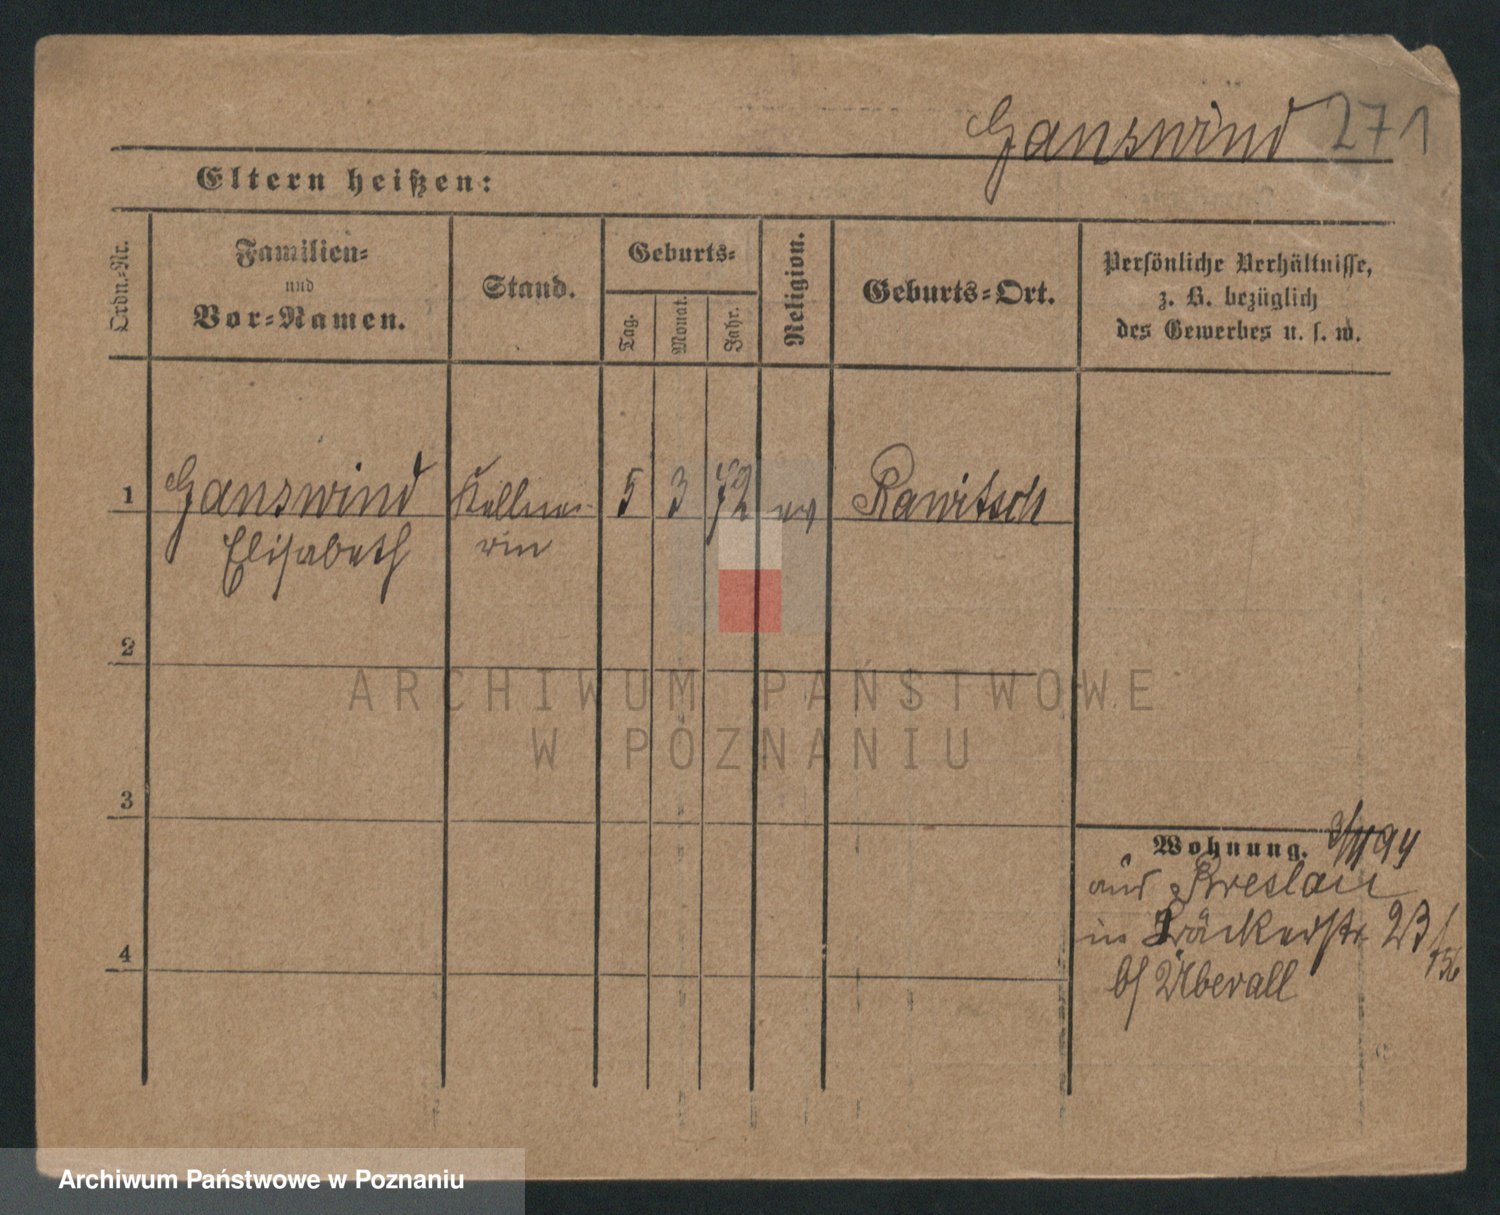 Ganswind 271
Eltern heißen:
Ordn.-Nr.
Familien-
und
Vor-Namen.
Stand.
Geburts-
Tag.
Monat.
Jahr.
Religion.
Geburts-Ort.
Persönliche Verhältnisse,
z. B. bezüglich
des Gewerbes u. s. w.
1 Ganswind Kellne- 5 3 72 ev Rawitsch
Elisabeth rin
2
ARCHIWUM PAŃSTWOWE
W POZNANIU
3
Wohnung. 94
aus Breslau
in Bäckerstr 23
b/ Überall
4
Archiwum Państwowe w Poznaniu